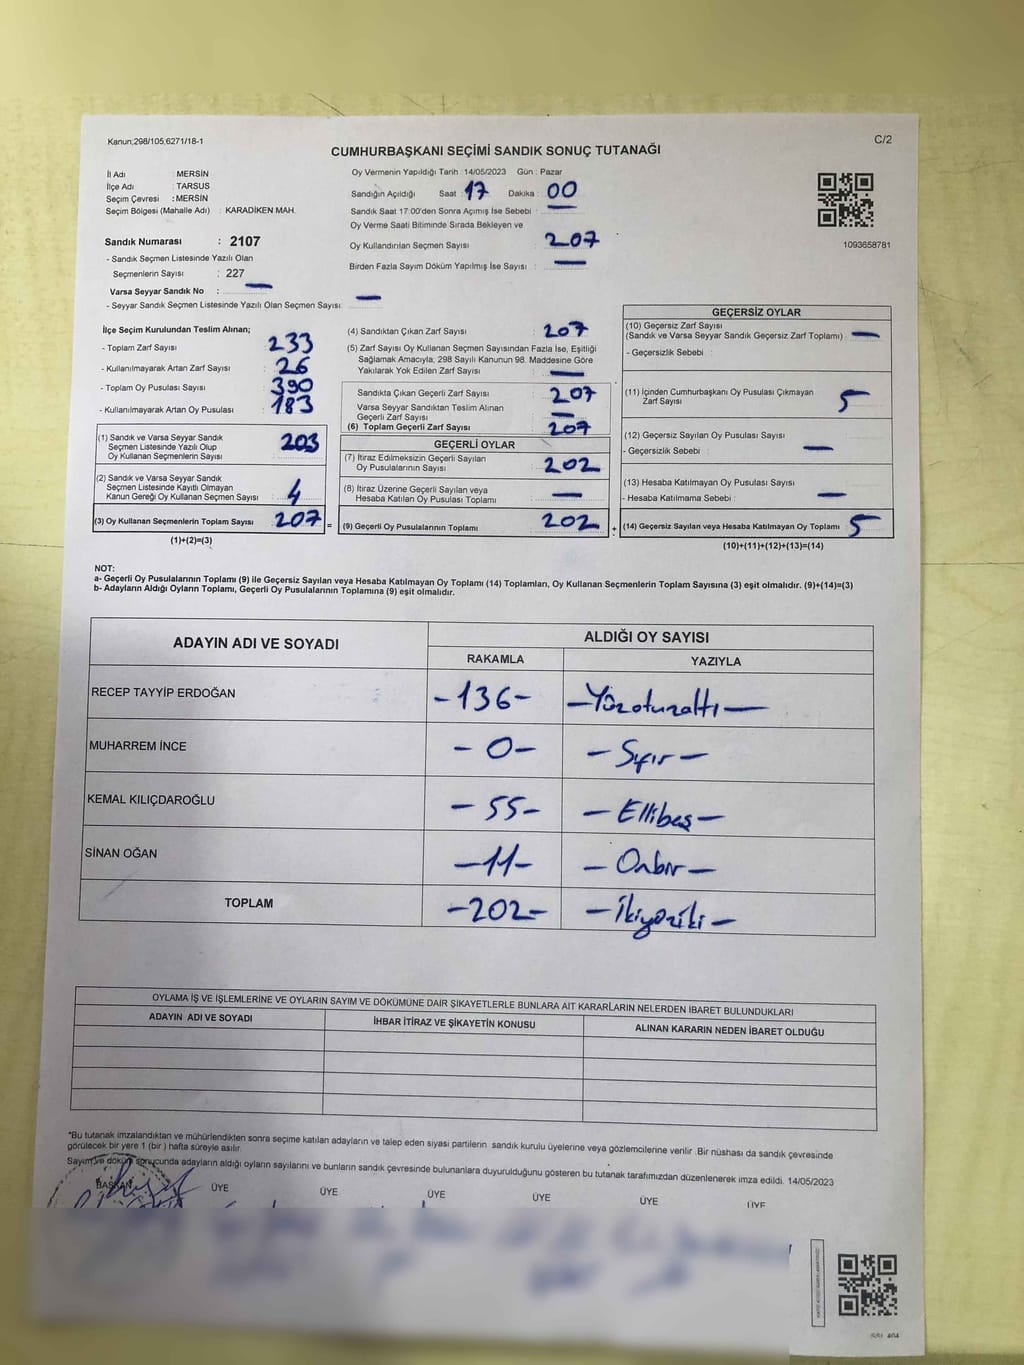 Kanun;298/105;6271/18-1
C/2
CUMHURBAŞKANI SEÇİMİ SANDIK SONUÇ TUTANAĞI
İl Adı : MERSİN
İlçe Adı : TARSUS
Seçim Çevresi : MERSİN
Seçim Bölgesi (Mahalle Adı) : KARADİKEN MAH.
Sandık Numarası : 2107
- Sandık Seçmen Listesinde Yazılı Olan
Seçmenlerin Sayısı : 227
Varsa Seyyar Sandık No : —
- Seyyar Sandık Seçmen Listesinde Yazılı Olan Seçmen Sayısı: —
Oy Vermenin Yapıldığı Tarih : 14/05/2023 Gün : Pazar
Sandığın Açıldığı Saat : 17 Dakika : 00
Sandık Saat 17:00'den Sonra Açımış İse Sebebi : —
Oy Verme Saati Bitiminde Sırada Bekleyen ve
Oy Kullandırılan Seçmen Sayısı : 207
Birden Fazla Sayım Döküm Yapılmış İse Sayısı : —
1093658781
İlçe Seçim Kurulundan Teslim Alınan;
- Toplam Zarf Sayısı : 233
- Kullanılmayarak Artan Zarf Sayısı : 26
- Toplam Oy Pusulası Sayısı : 390
- Kullanılmayarak Artan Oy Pusulası : 183
(1) Sandık ve Varsa Seyyar Sandık
Seçmen Listesinde Yazılı Olup
Oy Kullanan Seçmenlerin Sayısı : 203
(2) Sandık ve Varsa Seyyar Sandık
Seçmen Listesinde Kayıtlı Olmayan
Kanun Gereği Oy Kullanan Seçmen Sayısı : 4
(3) Oy Kullanan Seçmenlerin Toplam Sayısı : 207 =
(1)+(2)=(3)
(4) Sandıktan Çıkan Zarf Sayısı : 207
(5) Zarf Sayısı Oy Kullanan Seçmen Sayısından Fazla İse, Eşitliği
Sağlamak Amacıyla, 298 Sayılı Kanunun 98. Maddesine Göre
Yakılarak Yok Edilen Zarf Sayısı : —
Sandıkta Çıkan Geçerli Zarf Sayısı : 207
Varsa Seyyar Sandıktan Teslim Alınan
Geçerli Zarf Sayısı : —
(6) Toplam Geçerli Zarf Sayısı : 207
GEÇERLİ OYLAR
(7) İtiraz Edilmeksizin Geçerli Sayılan
Oy Pusulalarının Sayısı : 202
(8) İtiraz Üzerine Geçerli Sayılan veya
Hesaba Katılan Oy Pusulası Toplamı : —
(9) Geçerli Oy Pusulalarının Toplamı : 202 +
GEÇERSİZ OYLAR
(10) Geçersiz Zarf Sayısı
(Sandık ve Varsa Seyyar Sandık Geçersiz Zarf Toplamı) : —
- Geçersizlik Sebebi :
(11) İçinden Cumhurbaşkanı Oy Pusulası Çıkmayan
Zarf Sayısı : 5
(12) Geçersiz Sayılan Oy Pusulası Sayısı :
- Geçersizlik Sebebi : —
(13) Hesaba Katılmayan Oy Pusulası Sayısı :
- Hesaba Katılmama Sebebi : —
(14) Geçersiz Sayılan veya Hesaba Katılmayan Oy Toplamı : 5
(10)+(11)+(12)+(13)=(14)
NOT:
a- Geçerli Oy Pusulalarının Toplamı (9) ile Geçersiz Sayılan veya Hesaba Katılmayan Oy Toplamı (14) Toplamları, Oy Kullanan Seçmenlerin Toplam Sayısına (3) eşit olmalıdır. (9)+(14)=(3)
b- Adayların Aldığı Oyların Toplamı, Geçerli Oy Pusulalarının Toplamına (9) eşit olmalıdır.
ADAYIN ADI VE SOYADI
ALDIĞI OY SAYISI
RAKAMLA YAZIYLA
RECEP TAYYİP ERDOĞAN -136- -Yüzotuzaltı-
MUHARREM İNCE -0- -Sıfır-
KEMAL KILIÇDAROĞLU -55- -Ellibeş-
SİNAN OĞAN -11- -Onbir-
TOPLAM -202- -İkiyüziki-
OYLAMA İŞ VE İŞLEMLERİNE VE OYLARIN SAYIM VE DÖKÜMÜNE DAİR ŞİKAYETLERLE BUNLARA AİT KARARLARIN NELERDEN İBARET BULUNDUKLARI
ADAYIN ADI VE SOYADI İHBAR İTİRAZ VE ŞİKAYETİN KONUSU ALINAN KARARIN NEDEN İBARET OLDUĞU
*Bu tutanak imzalandıktan ve mühürlendikten sonra seçime katılan adayların ve talep eden siyasi partilerin sandık kurulu üyelerine veya gözlemcilerine verilir .Bir nüshası da sandık çevresinde
görülecek bir yere 1 (bir ) hafta süreyle asılır.
Sayım ve döküm sonucunda adayların aldığı oyların sayılarını ve bunların sandık çevresinde bulunanlara duyurulduğunu gösteren bu tutanak tarafımızdan düzenlenerek imza edildi. 14/05/2023
BAŞKAN ÜYE ÜYE ÜYE ÜYE ÜYE ÜYE